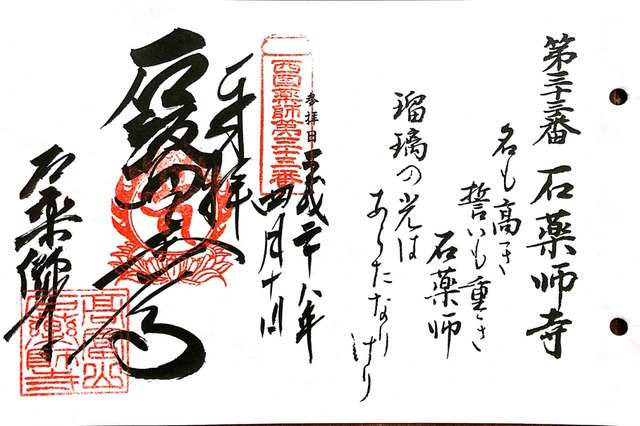 第三十三番 石薬師寺
名も高き
誓いも重き
石薬師
瑠璃の光は
あらたなりけり
参拝日 平成二十八年
四月十
西国薬師第三十三番
奉拝
石薬師寺
高富山
石薬師寺